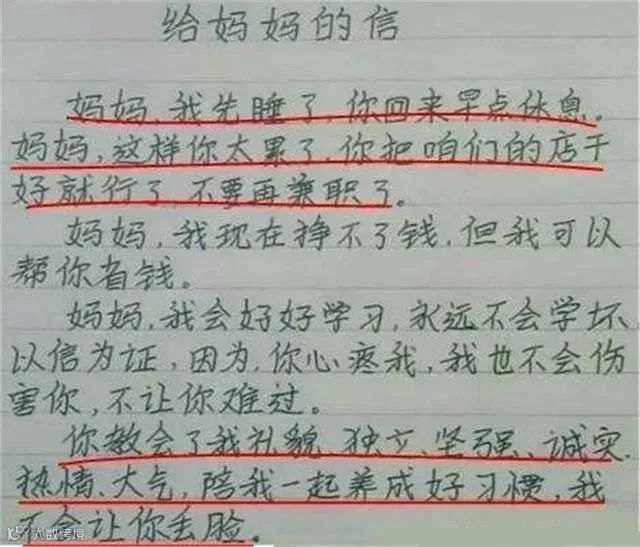 给妈妈的信
妈妈,我先睡了,你回来早点休息。
妈妈,这样你太累了,你把咱们的店干
好就行了,不要再兼职了。
妈妈,我现在挣不了钱,但我可以
帮你省钱。
妈妈,我会好好学习,永远不会学坏
以信为证,因为,你心疼我,我也不会伤
害你,不让你难过。
你教会了我礼貌、独立、坚强、诚实、
热情、大气,陪我一起养成好习惯,我
不会让你丢脸。
大数跨境